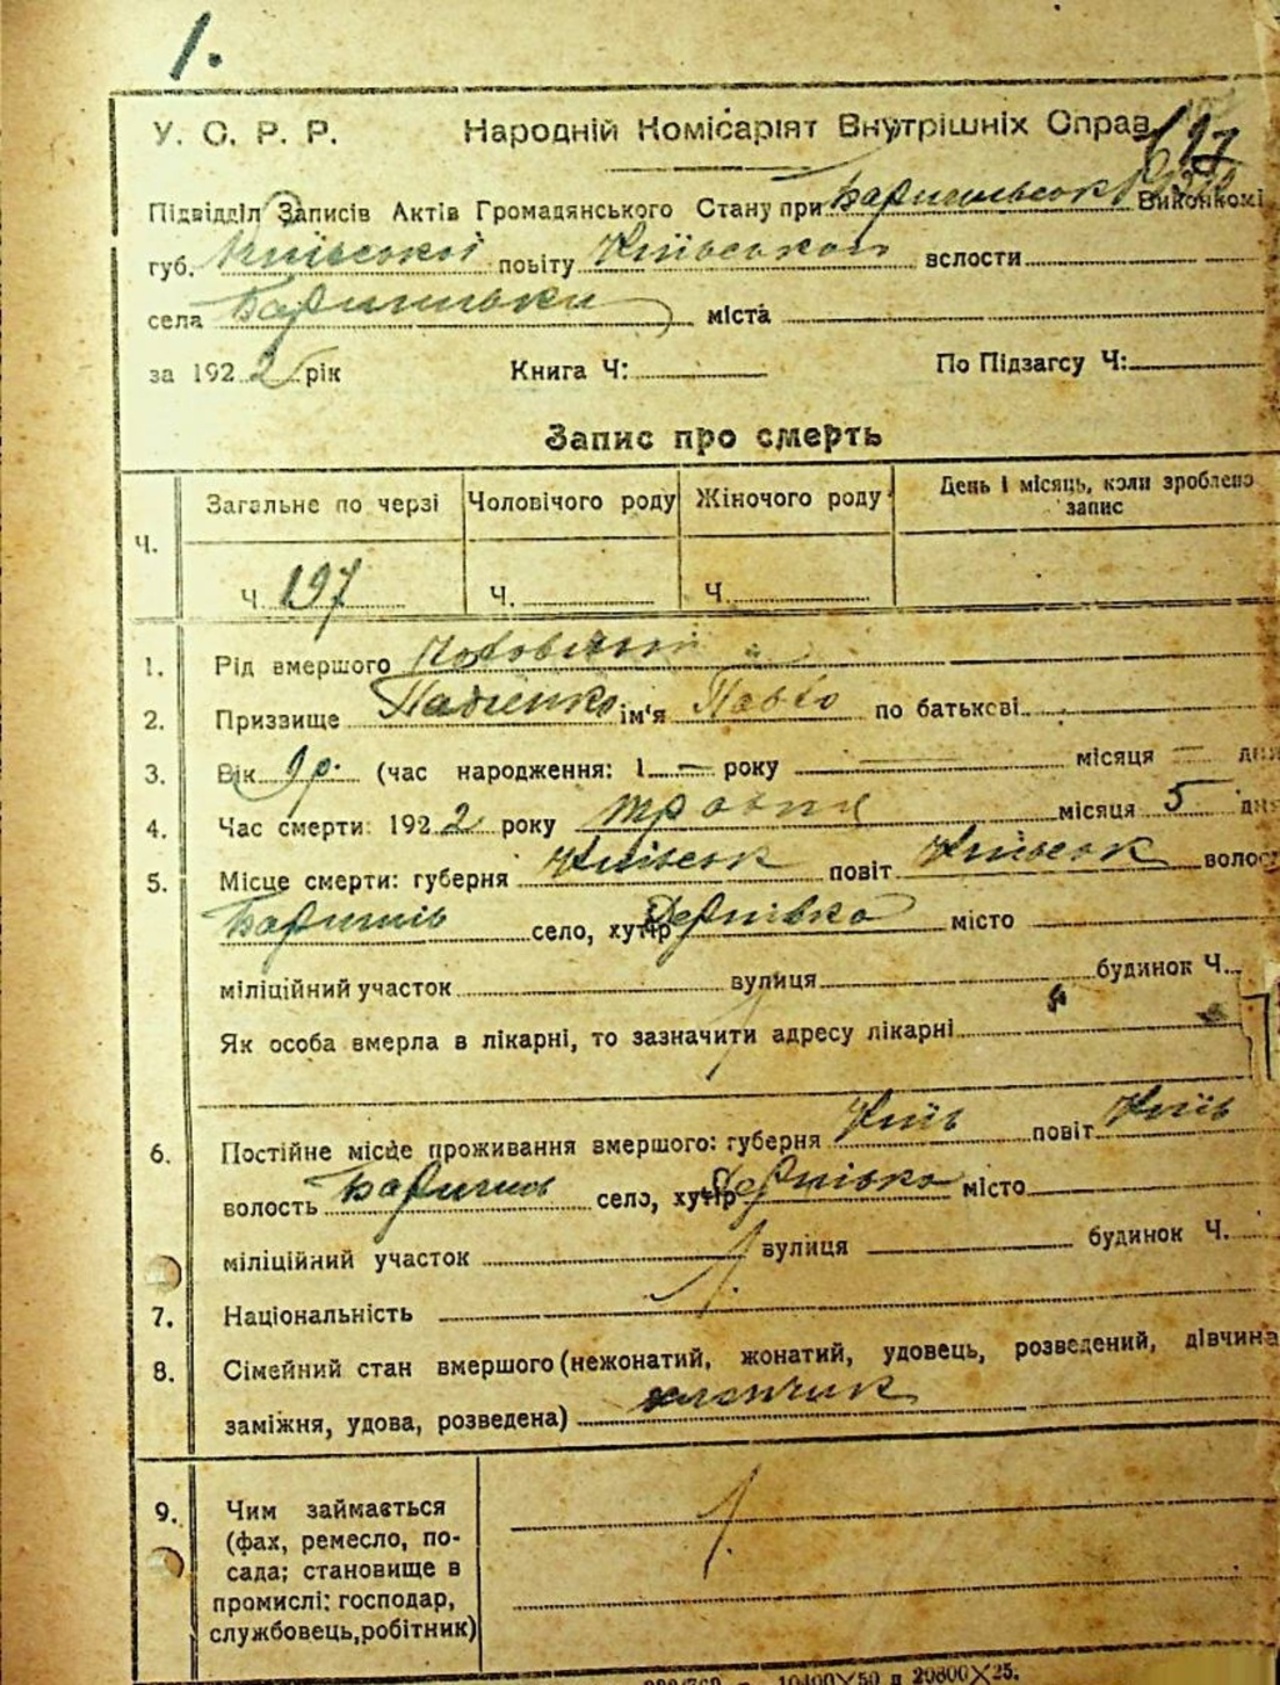 1.
У. С. Р. Р. Народній Комісаріят Внутрішніх Справ
Підвідділ Записів Актів Громадянського Стану при Баришільськ Виконкомі
губ. Київської повіту Київського вслости
села Баришівки міста
за 1922 рік Книга Ч: По Підзагсу Ч:
Запис про смерть
Ч. Загальне по черзі Чоловічого роду Жіночого роду День і місяць, коли зроблено запис
Ч. 197 Ч. Ч.
1. Рід вмершого
2. Призвище ім'я Павло по батькові
3. Вік 9 р. (час народження: 1 — року — місяця —
4. Час смерти: 1922 року травня місяця 5
5. Місце смерти: губерня Київськ повіт Київськ
Баришів село, хутір Дернівка місто
міліційний участок вулиця будинок Ч.
Як особа вмерла в лікарні, то зазначити адресу лікарні
6. Постійне місце проживання вмершого: губерня Київ повіт Київ
волость Баришів село, хутір Дернівка місто
міліційний участок вулиця будинок Ч.
7. Національність
8. Сімейний стан вмершого (нежонатий, жонатий, удовець, розведений, дівчина
заміжня, удова, розведена) хлопчик
9. Чим займається
(фах, ремесло, по-
сада; становище в
промислі: господар,
службовець, робітник)
10400×50 п 20800×25.